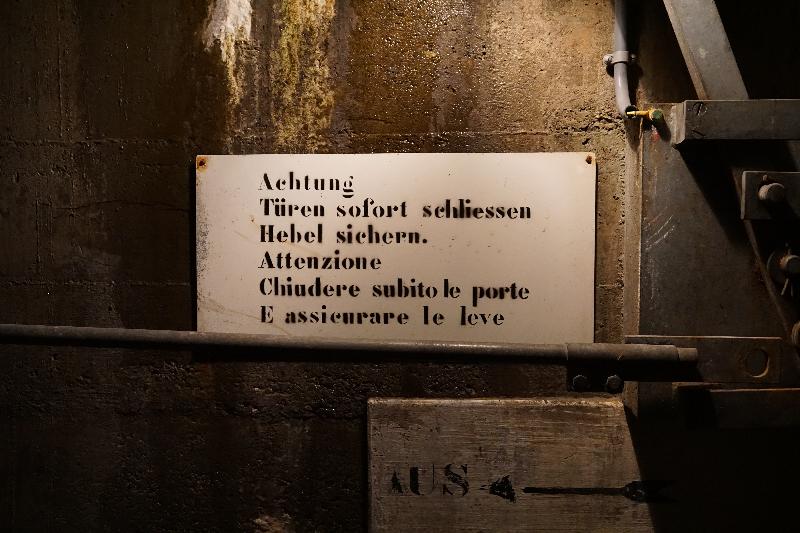 Achtung
Türen sofort schliessen
Hebel sichern.
Attenzione
Chiudere subito le porte
E assicurare le leve
AUS